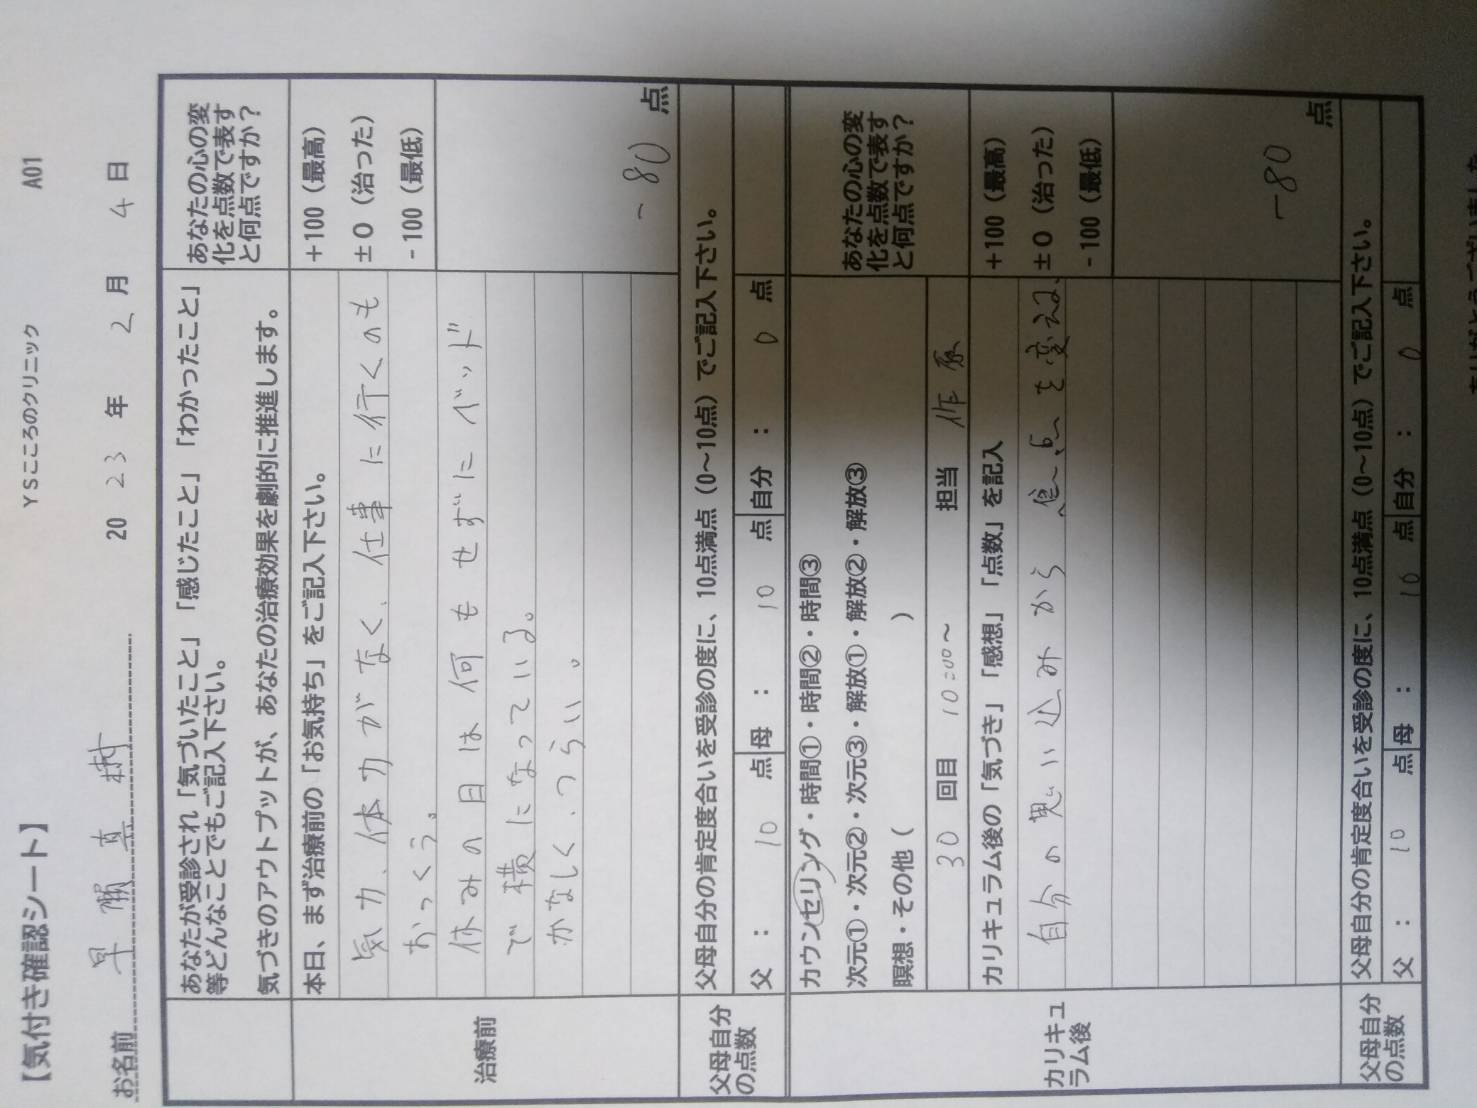 【気付き確認シート】
ＹＳこころのクリニック
A01
お名前 早瀬真
2023年2月4日
あなたが受診され「気づいたこと」「感じたこと」「わかったこと」
等どんなことでもご記入下さい。
気づきのアウトプットが、あなたの治療効果を劇的に推進します。
あなたの心の変
化を点数で表す
と何点ですか？
治療前
本日、まず治療前の「お気持ち」をご記入下さい。
気力、体力がなく、仕事に行くのも
おっくう。
休みの日は何もせずにベッド
で横になっている。
かなしく、つらい。
+100（最高）
±0（治った）
-100（最低）
-80 点
父母自分
の点数
父母自分の肯定度合いを受診の度に、10点満点（0～10点）でご記入下さい。
父： 10 点 母： 10 点 自分： 0 点
カウンセリング・時間①・時間②・時間③
次元①・次元②・次元③・解放①・解放②・解放③
瞑想・その他（ ）
30 回目 10:00～ 担当
あなたの心の変
化を点数で表す
と何点ですか？
カリキュ
ラム後
カリキュラム後の「気づき」「感想」「点数」を記入
自分の思い込みから を変える、
+100（最高）
±0（治った）
-100（最低）
-80 点
父母自分
の点数
父母自分の肯定度合いを受診の度に、10点満点（0～10点）でご記入下さい。
父： 10 点 母： 10 点 自分： 0 点